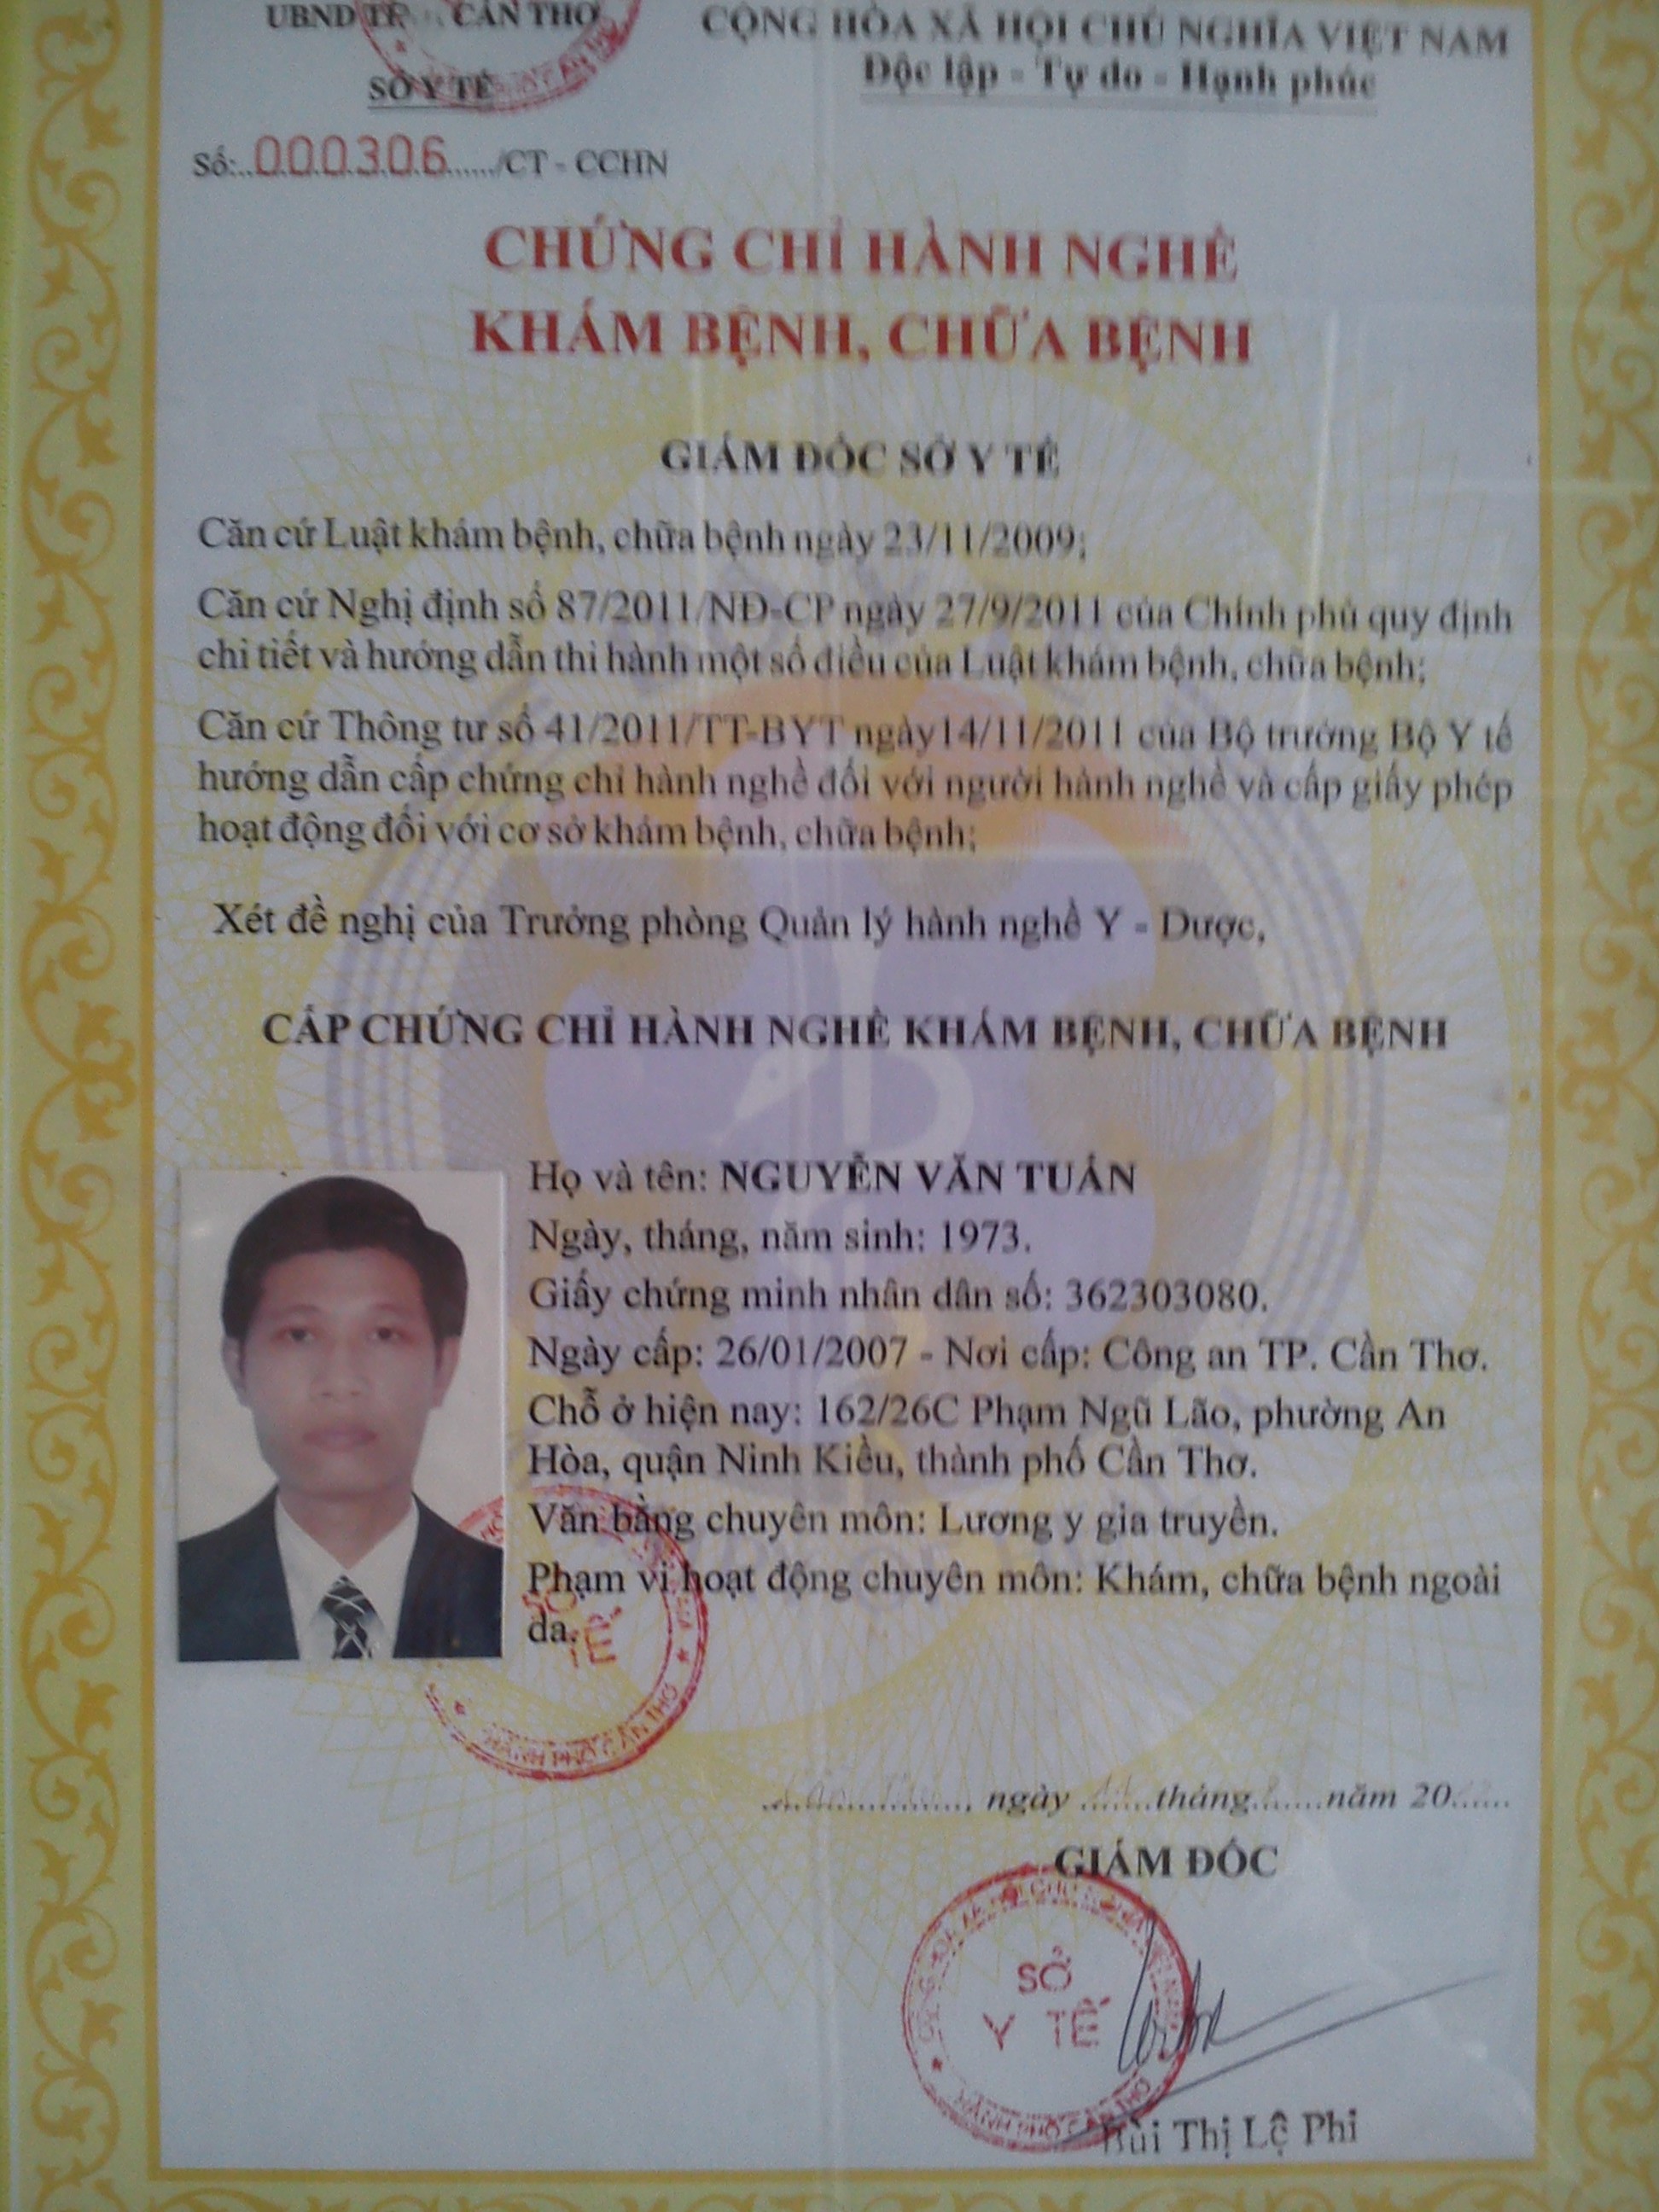 UBND TP. CẦN THƠ
CỘNG HÒA XÃ HỘI CHỦ NGHĨA VIỆT NAM
SỞ Y TẾ
Độc lập - Tự do - Hạnh phúc
Số:..000306....../CT - CCHN
CHỨNG CHỈ HÀNH NGHỀ
KHÁM BỆNH, CHỮA BỆNH
GIÁM ĐỐC SỞ Y TẾ
Căn cứ Luật khám bệnh, chữa bệnh ngày 23/11/2009;
Căn cứ Nghị định số 87/2011/NĐ-CP ngày 27/9/2011 của Chính phủ quy định
chi tiết và hướng dẫn thi hành một số điều của Luật khám bệnh, chữa bệnh;
Căn cứ Thông tư số 41/2011/TT-BYT ngày14/11/2011 của Bộ trưởng Bộ Y tế
hướng dẫn cấp chứng chỉ hành nghề đối với người hành nghề và cấp giấy phép
hoạt động đối với cơ sở khám bệnh, chữa bệnh;
Xét đề nghị của Trưởng phòng Quản lý hành nghề Y - Dược,
CẤP CHỨNG CHỈ HÀNH NGHỀ KHÁM BỆNH, CHỮA BỆNH
Họ và tên: NGUYỄN VĂN TUẤN
Ngày, tháng, năm sinh: 1973.
Giấy chứng minh nhân dân số: 362303080.
Ngày cấp: 26/01/2007 - Nơi cấp: Công an TP. Cần Thơ.
Chỗ ở hiện nay: 162/26C Phạm Ngũ Lão, phường An
Hòa, quận Ninh Kiều, thành phố Cần Thơ.
Văn bằng chuyên môn: Lương y gia truyền.
Phạm vi hoạt động chuyên môn: Khám, chữa bệnh ngoài
da.
SỞ
Y TẾ
THÀNH PHỐ CẦN THƠ
ngày tháng năm 20
GIÁM ĐỐC
SỞ
Y TẾ
THÀNH PHỐ CẦN THƠ
Bùi Thị Lệ Phi